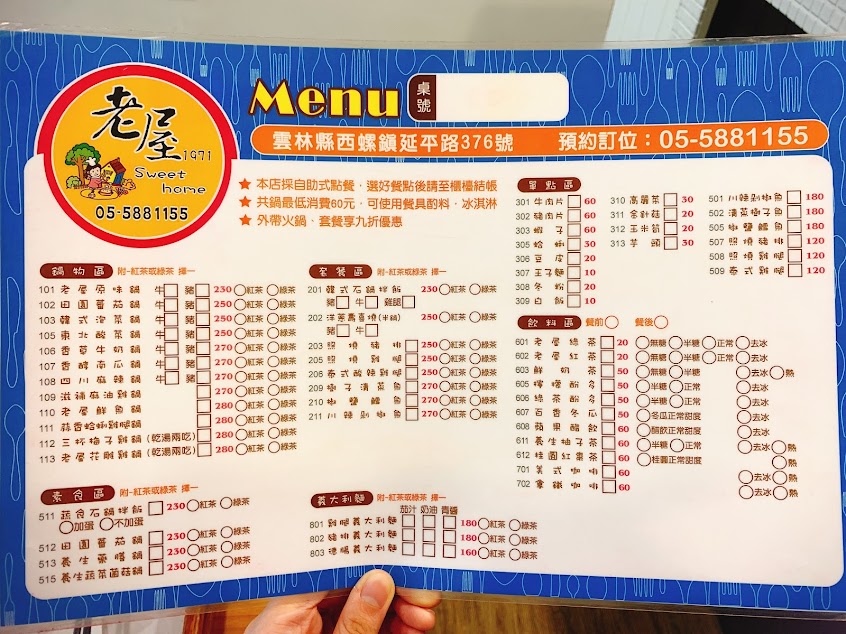 老屋
1971
Sweet home
05-5881155
Menu 桌號
雲林縣西螺鎮延平路376號 預約訂位：05-5881155
★ 本店採自助式點餐，選好餐點後請至櫃檯結帳
★ 共鍋最低消費60元，可使用餐具酌料，冰淇淋
★ 外帶火鍋，套餐享九折優惠
鍋物區 附-紅茶或綠茶 擇一
101 老屋原味鍋 牛□ 豬□ 230 ○紅茶 ○綠茶
102 田園蕃茄鍋 牛□ 豬□ 250 ○紅茶 ○綠茶
103 韓式泡菜鍋 牛□ 豬□ 250 ○紅茶 ○綠茶
105 東北酸菜鍋 牛□ 豬□ 250 ○紅茶 ○綠茶
106 香草牛奶鍋 牛□ 豬□ 270 ○紅茶 ○綠茶
107 香醇南瓜鍋 牛□ 豬□ 270 ○紅茶 ○綠茶
108 四川麻辣鍋 牛□ 豬□ 270 ○紅茶 ○綠茶
109 滋補麻油雞鍋 □ 280 ○紅茶 ○綠茶
110 老屋鮮魚鍋 □ 280 ○紅茶 ○綠茶
111 蒜香蛤蜊雞腿鍋 □ 280 ○紅茶 ○綠茶
112 三杯梅子雞鍋(乾湯兩吃) □ 280 ○紅茶 ○綠茶
113 老屋花雕雞鍋(乾湯兩吃) □ 280 ○紅茶 ○綠茶
素食區 附-紅茶或綠茶 擇一
511 蔬食石鍋拌飯 □ 230 ○紅茶 ○綠茶
○加蛋 ○不加蛋
512 田園蕃茄鍋 □ 230 ○紅茶 ○綠茶
513 養生藥膳鍋 □ 230 ○紅茶 ○綠茶
515 養生蔬菜菌菇鍋 □ 230 ○紅茶 ○綠茶
套餐區 附-紅茶或綠茶 擇一
201 韓式石鍋拌飯 230 ○紅茶 ○綠茶
豬□ 牛□ 雞腿□
202 洋蔥壽喜燒(半鍋) 250 ○紅茶 ○綠茶
豬□ 牛□
203 照燒豬排 □ 250 ○紅茶 ○綠茶
205 照燒雞腿 □ 250 ○紅茶 ○綠茶
206 泰式酸辣雞腿 □ 250 ○紅茶 ○綠茶
209 樹子清蒸魚 □ 270 ○紅茶 ○綠茶
210 椒鹽鱈魚 □ 270 ○紅茶 ○綠茶
211 川辣剁椒魚 □ 270 ○紅茶 ○綠茶
義大利麵 附-紅茶或綠茶 擇一
茄汁 奶油 青醬
801 雞腿義大利麵 □ □ □ 180 ○紅茶 ○綠茶
802 豬排義大利麵 □ □ □ 180 ○紅茶 ○綠茶
803 德腸義大利麵 □ □ □ 160 ○紅茶 ○綠茶
單點區
301 牛肉片 □ 60
302 豬肉片 □ 60
303 蝦子 □ 60
305 蛤蜊 □ 30
306 豆皮 □ 20
307 王子麵 □ 10
308 冬粉 □ 20
309 白飯 □ 10
310 高麗菜 □ 30
311 金針菇 □ 20
312 玉米筍 □ 20
313 芋頭 □ 30
501 川辣剁椒魚 □ 180
502 清蒸樹子魚 □ 180
505 椒鹽鱈魚 □ 180
507 照燒豬排 □ 120
508 照燒雞腿 □ 120
509 泰式雞腿 □ 120
飲料區 餐前○ 餐後○
601 老屋綠茶 □ 20 ○無糖 ○半糖 ○正常 ○去冰
602 老屋紅茶 □ 20 ○無糖 ○半糖 ○正常 ○去冰
603 鮮奶茶 □ 50 ○無糖 ○半糖 ○正常 ○去冰 ○熱
605 檸檬酚多 □ 50 ○半糖 ○正常 ○去冰
606 綠茶酚多 □ 50 ○半糖 ○正常 ○去冰
607 百香冬瓜 □ 50 ○冬瓜正常甜度 ○去冰
608 蘋果醋飲 □ 60 ○醋飲正常甜度 ○去冰
611 養生柚子茶 □ 60 ○半糖 ○正常 ○去冰 ○熱
612 桂圓紅棗茶 □ 60 ○桂圓正常甜度 ○熱
701 美式咖啡 □ 60 ○去冰 ○熱
702 拿鐵咖啡 □ 60 ○去冰 ○熱